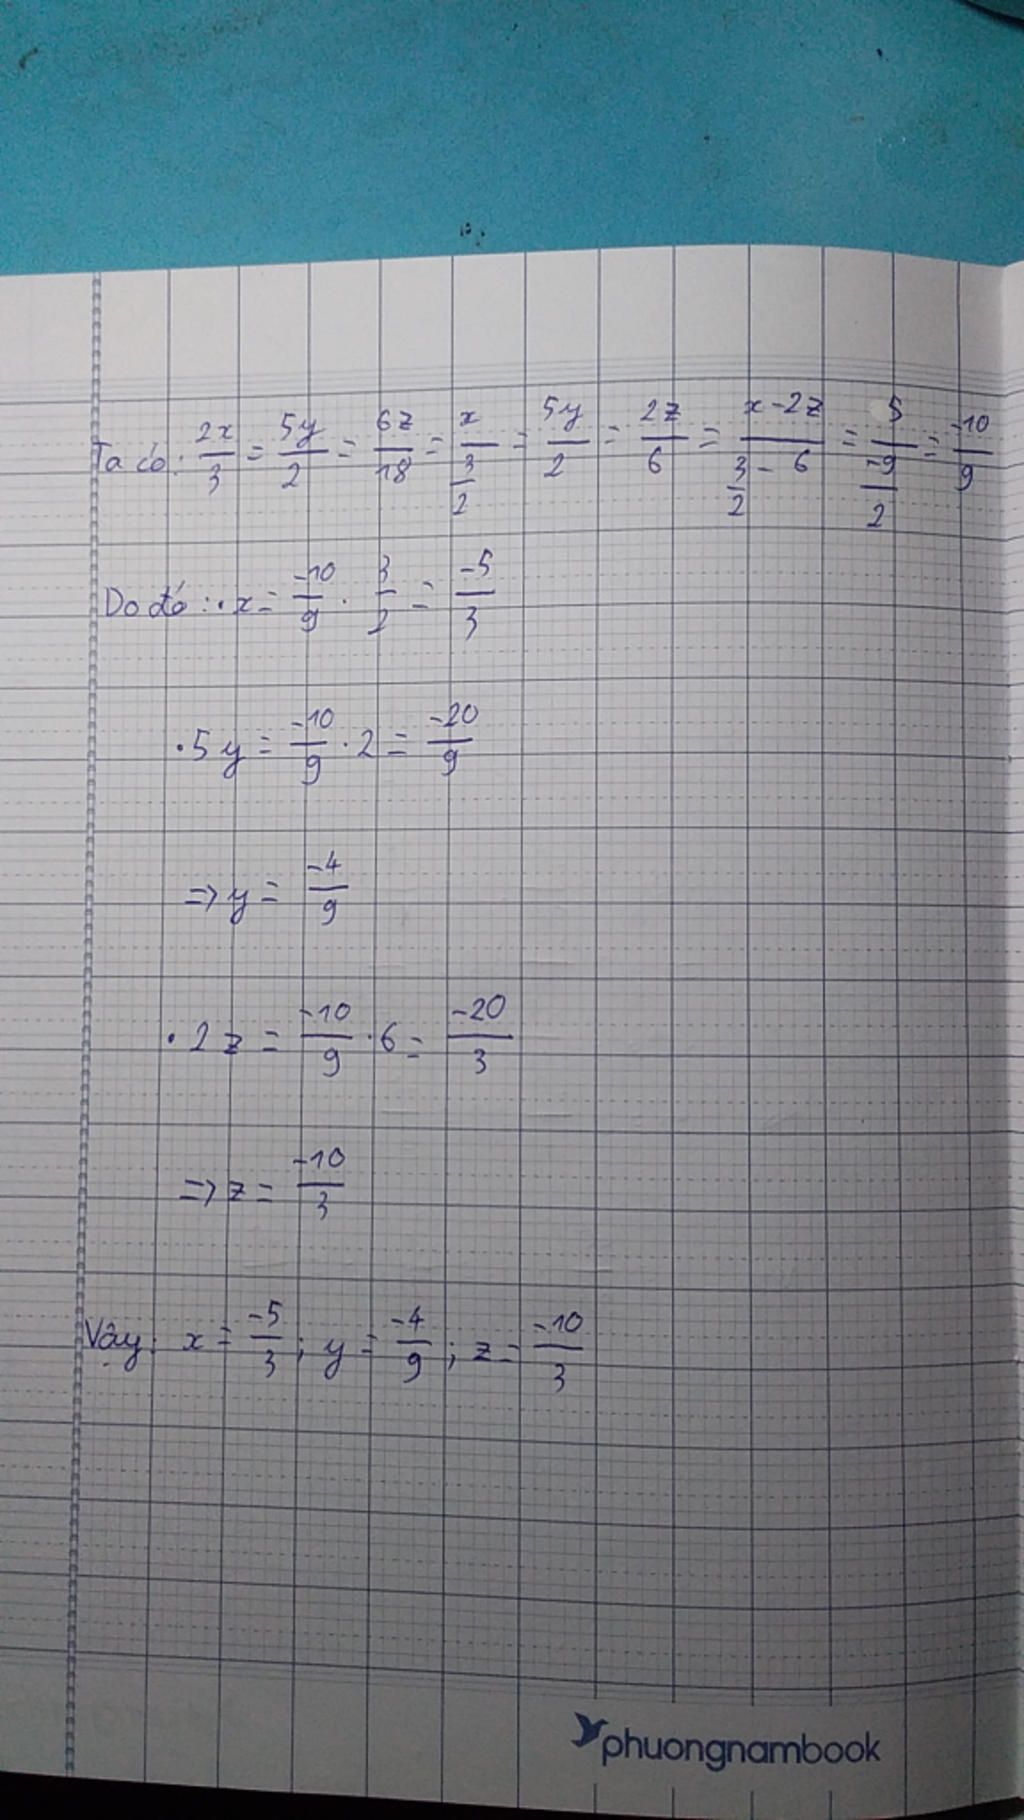 Ta có: 2x/3 = 5y/2 = 6z/18 = x/(3/2) = 5y/2 = 2z/6 = (x-2z)/(3/2 - 6) = 5/(-9/2) = -10/9
Do đó: • x = -10/9 . 3/2 = -5/3
• 5y = -10/9 . 2 = -20/9
=> y = -4/9
• 2z = -10/9 . 6 = -20/3
=> z = -10/3
Vậy: x = -5/3; y = -4/9; z = -10/3
phuongnambook